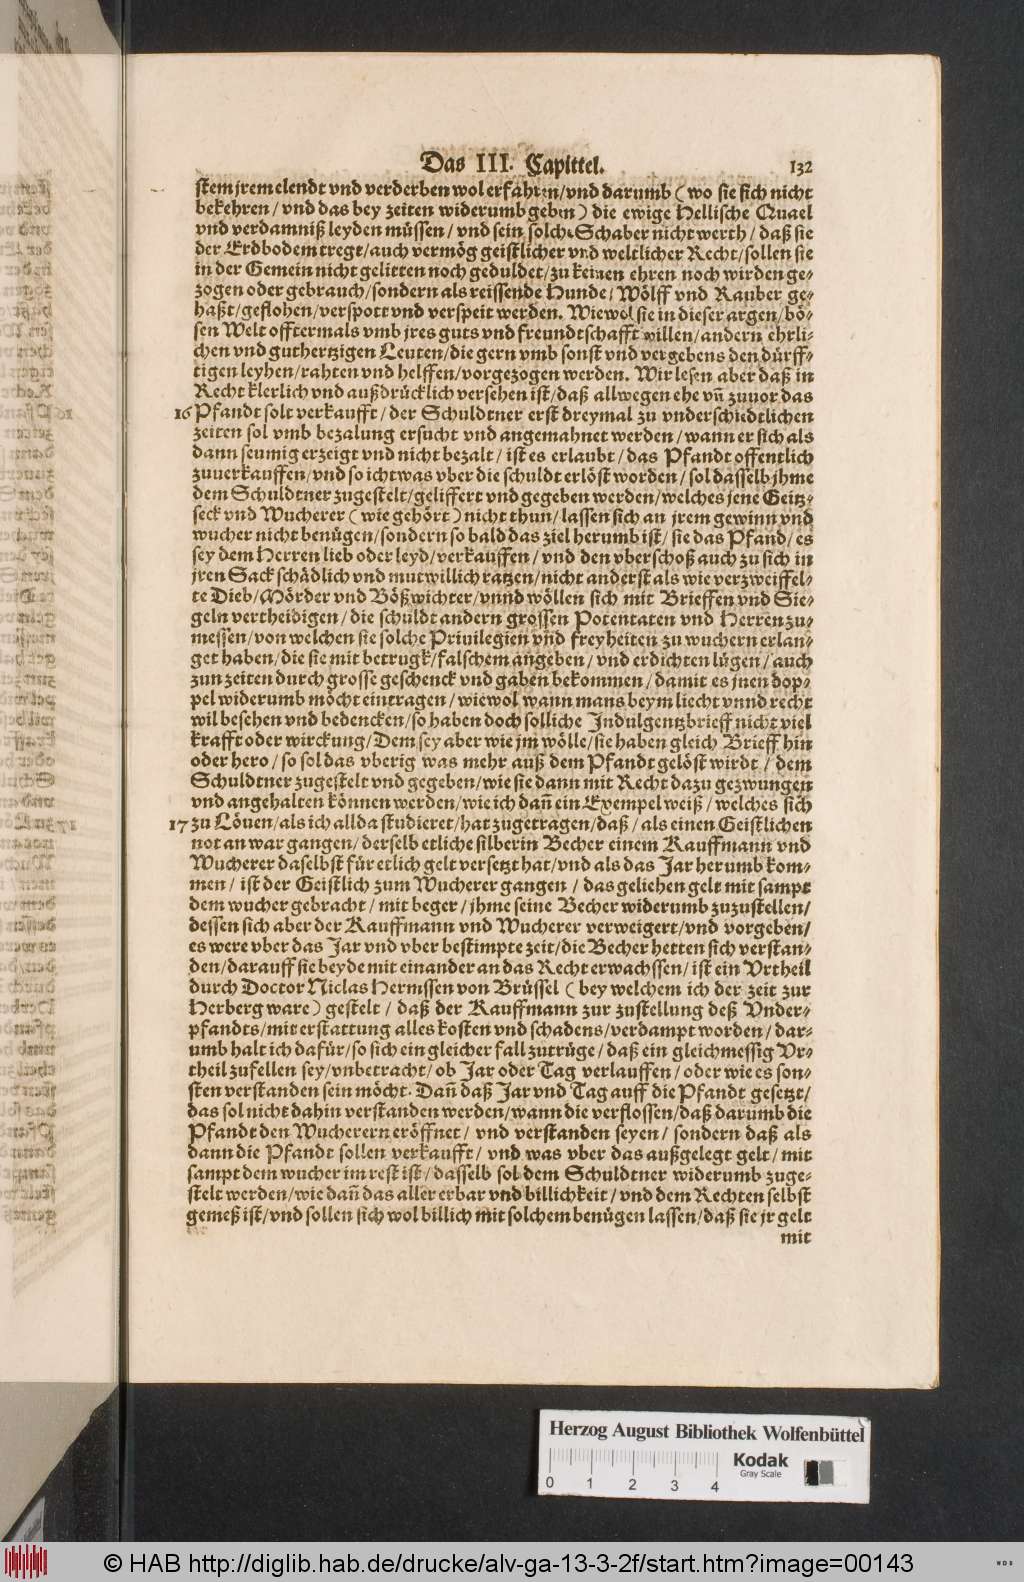 Das III. Capittel. 132
stem jrem elendt vnd verderben wol erfahren/vnd darumb (wo sie sich nicht
bekehren/vnd das bey zeiten widerumb geben) die ewige Hellische Quael
vnd verdamniß leyden müssen/vnd sein solche Schaber nicht werth/daß sie
der Erdbodem tregt/auch vermög geistlicher vnd weltlicher Recht/sollen sie
in der Gemein nicht gelitten noch geduldet/zu keinen ehren noch wirden ge-
zogen oder gebrauch/sondern als reissende Hunde/Wölff vnd Rauber ge-
haßt/geflohen/verspott vnd verspeit werden. Wiewol sie in dieser argen/bö-
sen Welt offtermals vmb jres guts vnd freundtschafft willen/andern ehrli-
chen vnd guthertzigen Leuten/die gern vmb sonst vnd vergebens den dürff-
tigen leyhen/rahten vnd helffen/vorgezogen werden. Wir lesen aber daß in
Recht klerlich vnd außdrücklich versehen ist/daß allwegen ehe vñ zuuor das
16 Pfandt solt verkaufft/der Schuldtner erst dreymal zu vnderschiedtlichen
zeiten sol vmb bezalung ersucht vnd angemahnet werden/wann er sich als
dann seumig erzeigt vnd nicht bezalt/ist es erlaubt/das Pfandt offentlich
zuuerkauffen/vnd so ichtwas vber die schuldt erlöst worden/sol dasselb jhme
dem Schuldtner zugestelt/geliffert vnd gegeben werden/welches jene Geitz-
seck vnd Wucherer (wie gehört) nicht thun/lassen sich an jrem gewinn vnd
wucher nicht benügen/sondern so bald das ziel herumb ist/sie das Pfand/es
sey dem Herren lieb oder leyd/verkauffen/vnd den vberschoß auch zu sich in
jren Sack schädlich vnd mutwillich ratzen/nicht anderst als wie verzweiffel-
te Dieb/Mörder vnd Bößwichter/vnnd wöllen sich mit Brieffen vnd Sie-
geln vertheidigen/die schuldt andern grossen Potentaten vnd Herren zu-
messen/von welchen sie solche Priuilegien vnd freyheiten zu wuchern erlan-
get haben/die sie mit betrugk/falschem angeben/vnd erdichten lügen/auch
zun zeiten durch grosse geschenck vnd gaben bekommen/damit es jnen dop-
pel widerumb möcht eintragen/wiewol wann mans beym liecht vnnd recht
wil besehen vnd bedencken/so haben doch solliche Indulgentzbrieff nicht viel
krafft oder wirckung/Dem sey aber wie jm wölle/sie haben gleich Brieff hin
oder hero/so sol das vberig was mehr auß dem Pfandt gelöst wirdt/dem
Schuldtner zugestelt vnd gegeben/wie sie dann mit Recht dazu gezwungen
vnd angehalten können werden/wie ich dañ ein Exempel weiß/welches sich
17 zu Löuen/als ich allda studieret/hat zugetragen/daß/als einen Geistlichen
not an war gangen/derselb etliche silberin Becher einem Kauffmann vnd
Wucherer daselbst für etlich gelt versetzt hat/vnd als das Jar herumb kom-
men/ist der Geistlich zum Wucherer gangen/das geliehen gelt mit sampt
dem wucher gebracht/mit beger/jhme seine Becher widerumb zuzustellen/
dessen sich aber der Kauffmann vnd Wucherer verweigert/vnd vorgeben/
es were vber das Jar vnd vber bestimpte zeit/die Becher hetten sich verstan-
den/darauff sie beyde mit einander an das Recht erwachssen/ist ein Vrtheil
durch Doctor Niclas Hermssen von Brüssel (bey welchem ich der zeit zur
Herberg ware) gestelt/daß der Kauffmann zur zustellung deß Vnder-
pfandts/mit erstattung alles kosten vnd schadens/verdampt worden/dar-
umb halt ich dafür/so sich ein gleicher fall zutrüge/daß ein gleichmessig Vr-
theil zufellen sey/vnbetracht/ob Jar oder Tag verlauffen/oder wie es son-
sten verstanden sein möcht. Dañ daß Jar vnd Tag auff die Pfandt gesetzt/
das sol nicht dahin verstanden werden/wann die verflossen/daß darumb die
Pfandt den Wucherern eröffnet/vnd verstanden seyen/sondern daß als
dann die Pfandt sollen verkaufft/vnd was vber das außgelegt gelt/mit
sampt dem wucher im rest ist/dasselb sol dem Schuldtner widerumb zuge-
stelt werden/wie dañ das aller erbar vnd billichkeit/vnd dem Rechten selbst
gemeß ist/vnd sollen sich wol billich mit solchem benügen lassen/daß sie jr gelt
mit
Herzog August Bibliothek Wolfenbüttel
Kodak
Gray Scale
0 1 2 3 4
© HAB http://diglib.hab.de/drucke/alv-ga-13-3-2f/start.htm?image=00143